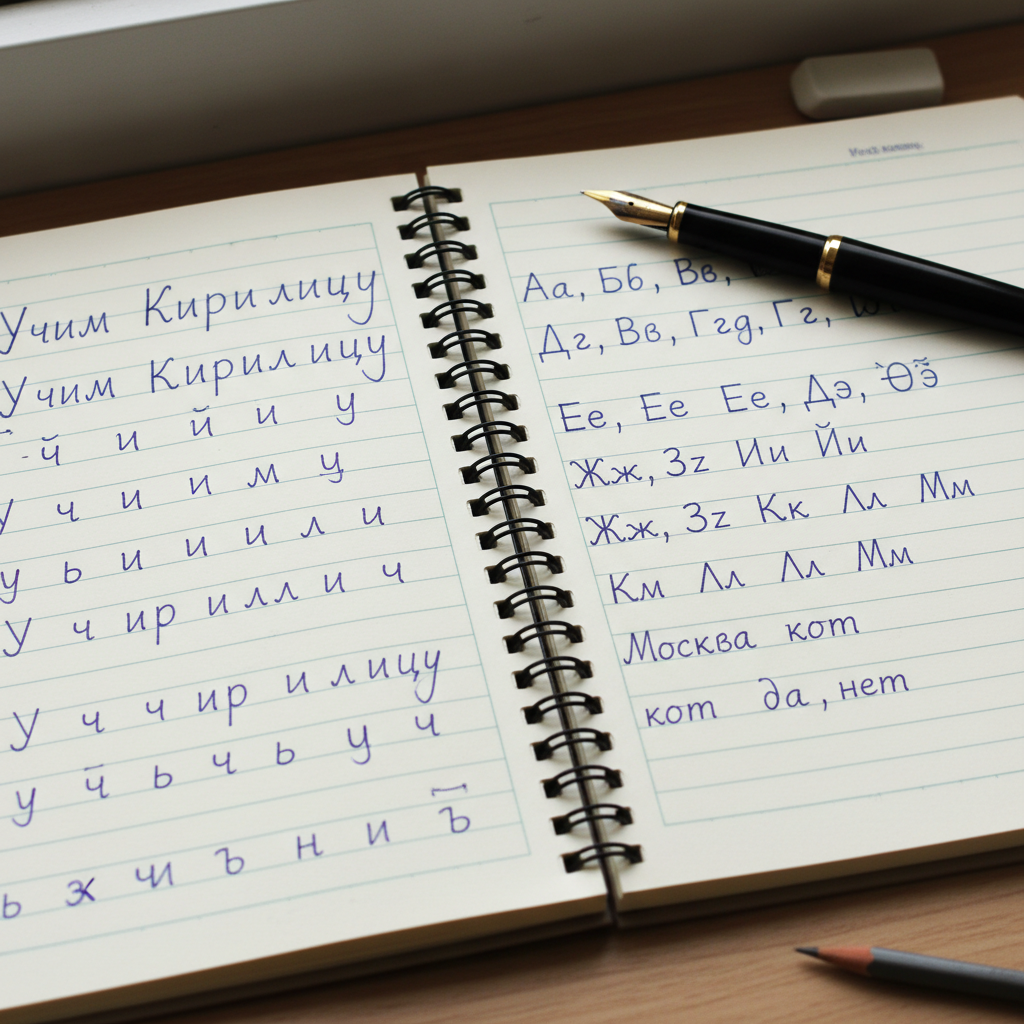 Учим Кирилицу
Учим Кирилицу
й и й и у
у ч и и м у
у ь и и и л и
У ч ир илли ч
У ч ч ир и лицу
у ь ч ь у ч
ь ж чи ъ н и ъ
Аа, Бб, Вв,
Дг, Вв, Ггд, Гг,
Ее, Ее Ее, Дэ,
Жж, Зz Ии Йи
Жж, Зz Кк Лл Мм
Км Лл Лл Мм
Москва кот
кот да, нет